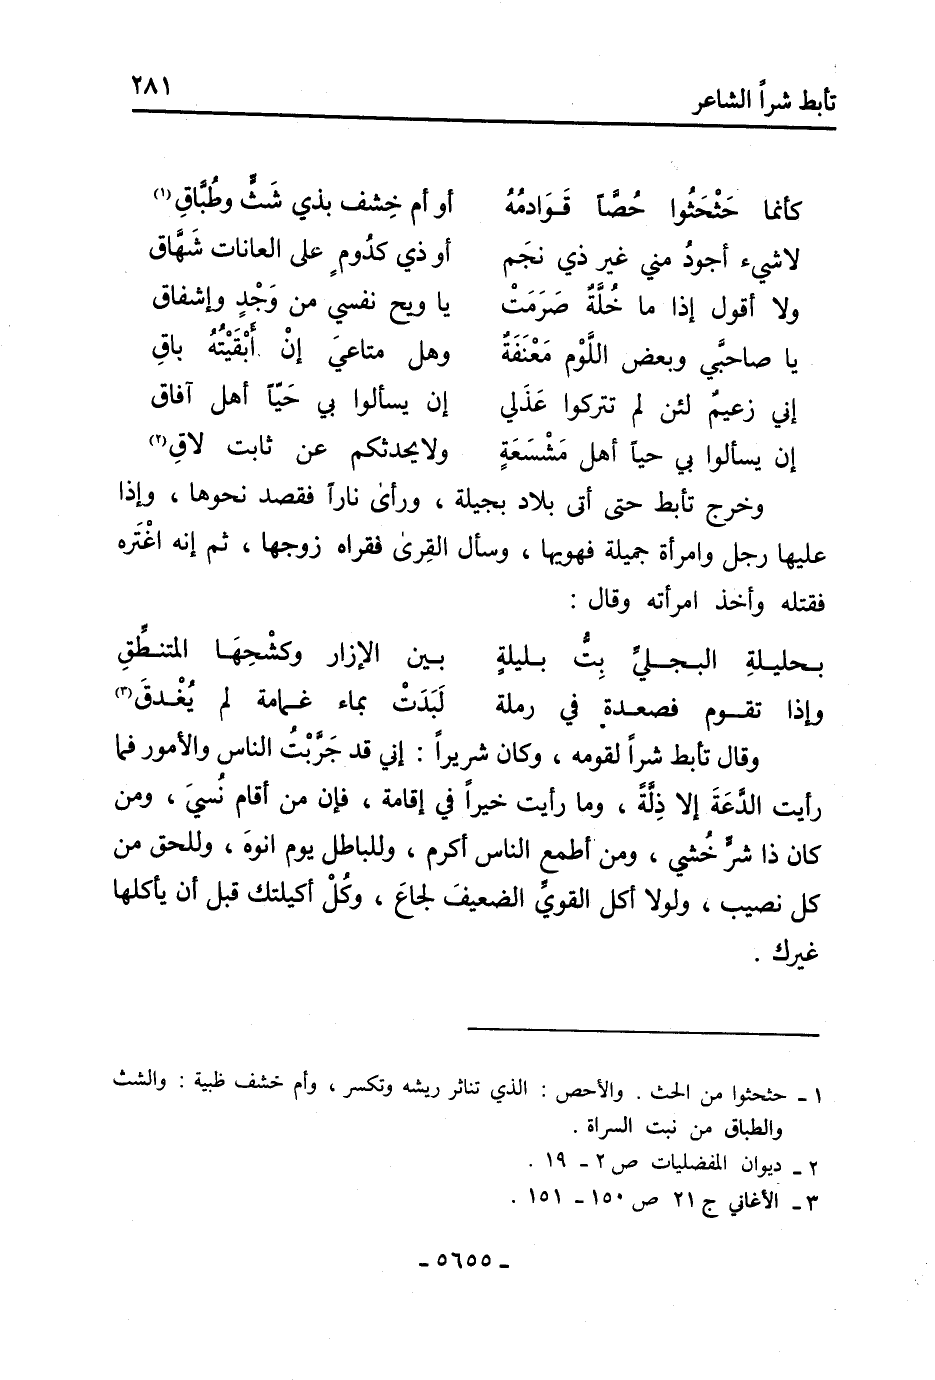 تأبط شراً الشاعر ٢٨١
كأنما حَثْحَثُوا حُصَّاً قَوَادمُهُ أو أم خِشف بذي شَثٍّ وطُبَّاقِ(١)
لاشيء أجودُ مني غير ذي نجَم أو ذي كدُومٍ على العانات شَهَّاق
ولا أقول إذا ما خُلَّةٌ صَرَمَتْ يا ويح نفسي من وَجْدٍ وإشفاق
يا صاحبَّي وبعض اللَّوْم مَعْنَفَةٌ وهل متاعيَ إنْ أَبْقَيْتُهُ باقِ
إني زعيمٌ لئن لم تتركوا عَذَلي إن يسألوا بي حَيّاً أهل آفاق
إن يسألوا بي حياً أهل مَشْسَعَةٍ ولايحدثكم عن ثابت لاقِ(٢)
وخرج تأبط حتى أتى بلاد بجيلة ، ورأىٰ ناراً فقصد نحوها ، وإذا
عليها رجل وامرأة جميلة فهويها ، وسأل القِرىٰ فقراه زوجها ، ثم إنه اغْتَره
فقتله وأخذ امرأته وقال :
بحليلةِ البجليِّ بِتُّ بليلةٍ بين الإزار وكشْحِهَا المتنطِّقِ
وإذا تقوم فصعدة في رملة لَبَدَتْ بماء غمامة لم يُغْدقَ(٣)
وقال تأبط شراً لقومه ، وكان شريراً : إني قد جَرَّبْتُ الناس والأمور فما
رأيت الدَّعَةَ إلا ذِلَّةً ، وما رأيت خيراً في إقامة ، فإن من أقام نُسيَ ، ومن
كان ذا شرٍّ خُشي ، ومن أطمع الناس أكرم ، وللباطل يوم انوهَ ، وللحق من
كل نصيب ، ولولا أكل القويِّ الضعيفَ لجاعَ ، وكُلْ أكيلتك قبل أن يأكلها
غيرك .
١ ـ حثحثوا من الحث . والأحص : الذي تناثر ريشه وتكسر ، وأم خشف ظبية : والشث
والطباق من نبت السراة .
٢ ـ ديوان المفضليات ص ٢ ـ ١٩ .
٣ ـ الأغاني ج ٢١ ص ١٥٠ ـ ١٥١ .
ـ ٥٦٥٥ ـ